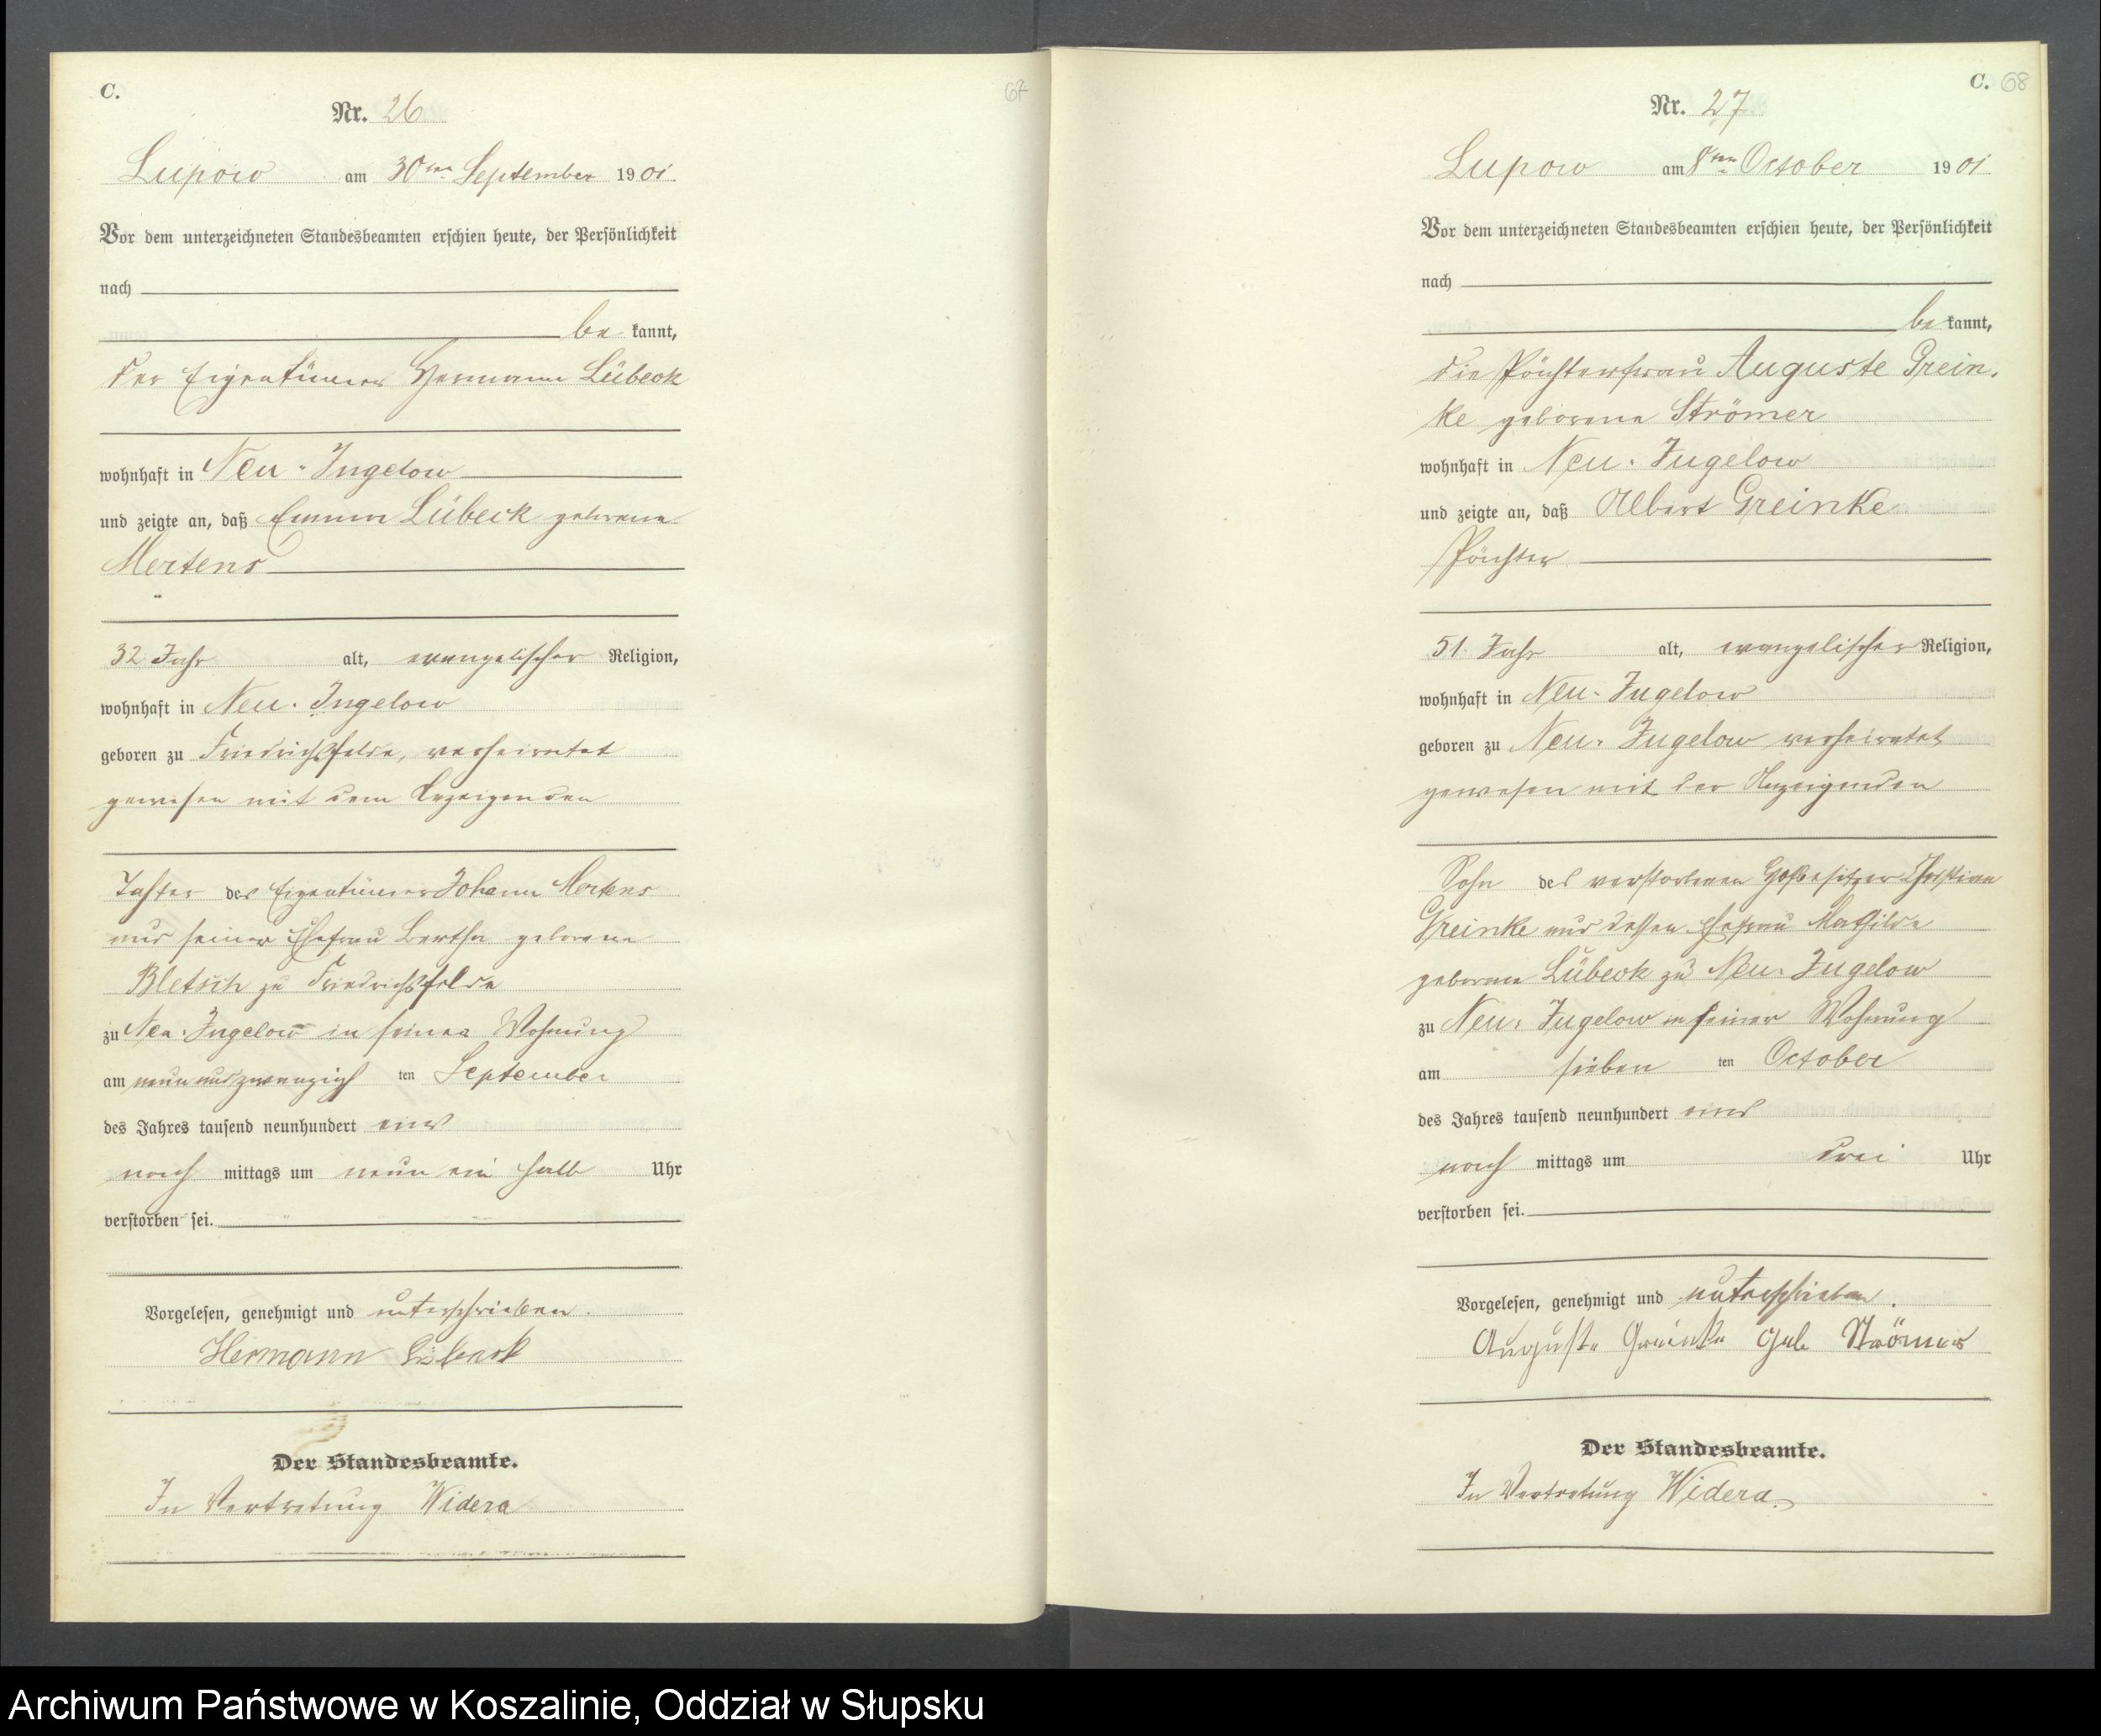 C.
67
Nr. 26
Lupow am 30ten September 1901
Vor dem unterzeichneten Standesbeamten erschien heute, der Persönlichkeit
nach
be kannt,
der Eigentümer Hermann Lübeck
wohnhaft in Neu-Jugelow
und zeigte an, daß Emma Lübeck geborene
Mertens
32 Jahr alt, evangelischer Religion,
wohnhaft in Neu-Jugelow
geboren zu Friedrichsfelde, verheiratet
gewesen mit dem Anzeigenden
Tochter des Eigentümers Johann Mertens
und seiner Ehefrau Bertha geborene
Bletsch zu Friedrichsfelde
zu Neu-Jugelow in seiner Wohnung
am neunundzwanzigsten September
des Jahres tausend neunhundert eins
nach mittags um neun ein halb Uhr
verstorben sei.
Vorgelesen, genehmigt und unterschrieben.
Hermann Lübeck
Der Standesbeamte.
In Vertretung Widera
C. 68
Nr. 27
Lupow am 8ten October 1901
Vor dem unterzeichneten Standesbeamten erschien heute, der Persönlichkeit
nach
be kannt,
die Pächterfrau Auguste Grein-
ke geborene Strömer
wohnhaft in Neu-Jugelow
und zeigte an, daß Albert Greinke
Pächter
51 Jahr alt, evangelischer Religion,
wohnhaft in Neu-Jugelow
geboren zu Neu-Jugelow verheiratet
gewesen mit der Anzeigenden
Sohn des verstorbenen Hofbesitzer Christian
Greinke und dessen Ehefrau Mathilde
geborene Lübeck zu Neu-Jugelow
zu Neu-Jugelow in seiner Wohnung
am sieben ten October
des Jahres tausend neunhundert eins
nach mittags um drei Uhr
verstorben sei.
Vorgelesen, genehmigt und unterschrieben.
Auguste Greinke geb Strömer
Der Standesbeamte.
In Vertretung Widera.
Archiwum Państwowe w Koszalinie, Oddział w Słupsku